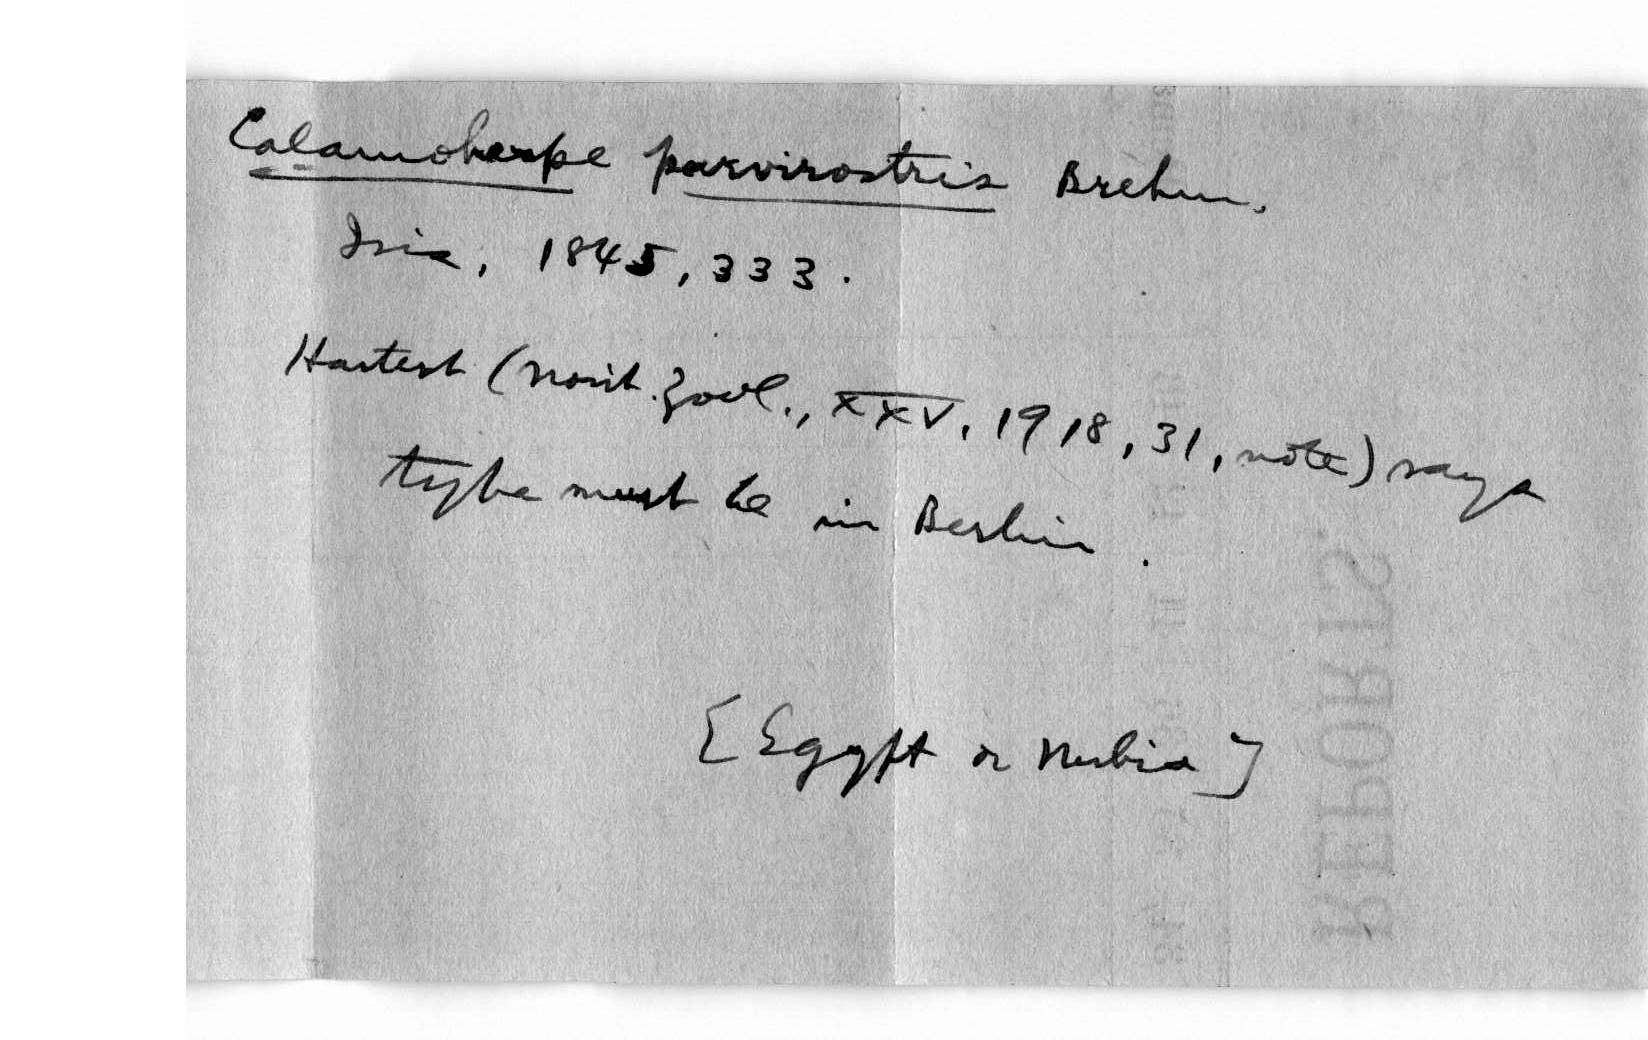 Calamoherpe parvirostris Brehm.
Isis, 1845, 333.
Hartert (Novit. Zool., XXV, 1918, 31, note) says
type must be in Berlin.
[Egypt or Nubia]
REPORTS.